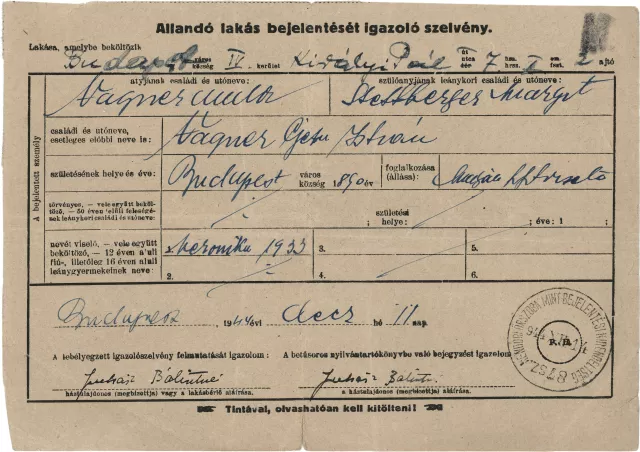 Allandó lakás bejelentését igazoló szelvény.
Lakása, amelybe beköltözik
Budapest város község IV. kerület Királyi Pál út utca tér 7 hsz. hrsz. I em. fszt. 2 ajtó
atyjának családi és utóneve: szülőanyjának leánykori családi és utóneve:
Vagner Margit
A bejelentett személy
családi és utóneve, esetleges előbbi neve is: Vagner István
születésének helye és éve: Budapest város község 1890 év foglalkozása (állása):
törvényes, — vele együtt beköltöző, — 50 éven felüli feleségének leánykori családi és utóneve:
születési helye: ; éve: 1 ;
nevét viselő, — vele együtt beköltöző, — 12 éven aluli fiú-, illetőleg 16 éven aluli leánygyermekeinek neve:
Veronika 1933 3. 5.
2. 4. 6.
Budapest 1944 évi decz hó 11 nap.
A lebélyegzett igazolószelvény felmutatását igazolom: A betűsoros nyilvántartókönyvbe való bejegyzést igazolom
Juhász Bálintné Juhász Bálintné
háztulajdonos (megbízottja) vagy a lakásbérlő aláírása. a háztulajdonos (megbízottja) aláírása.
Tintával, olvashatóan kell kitölteni!